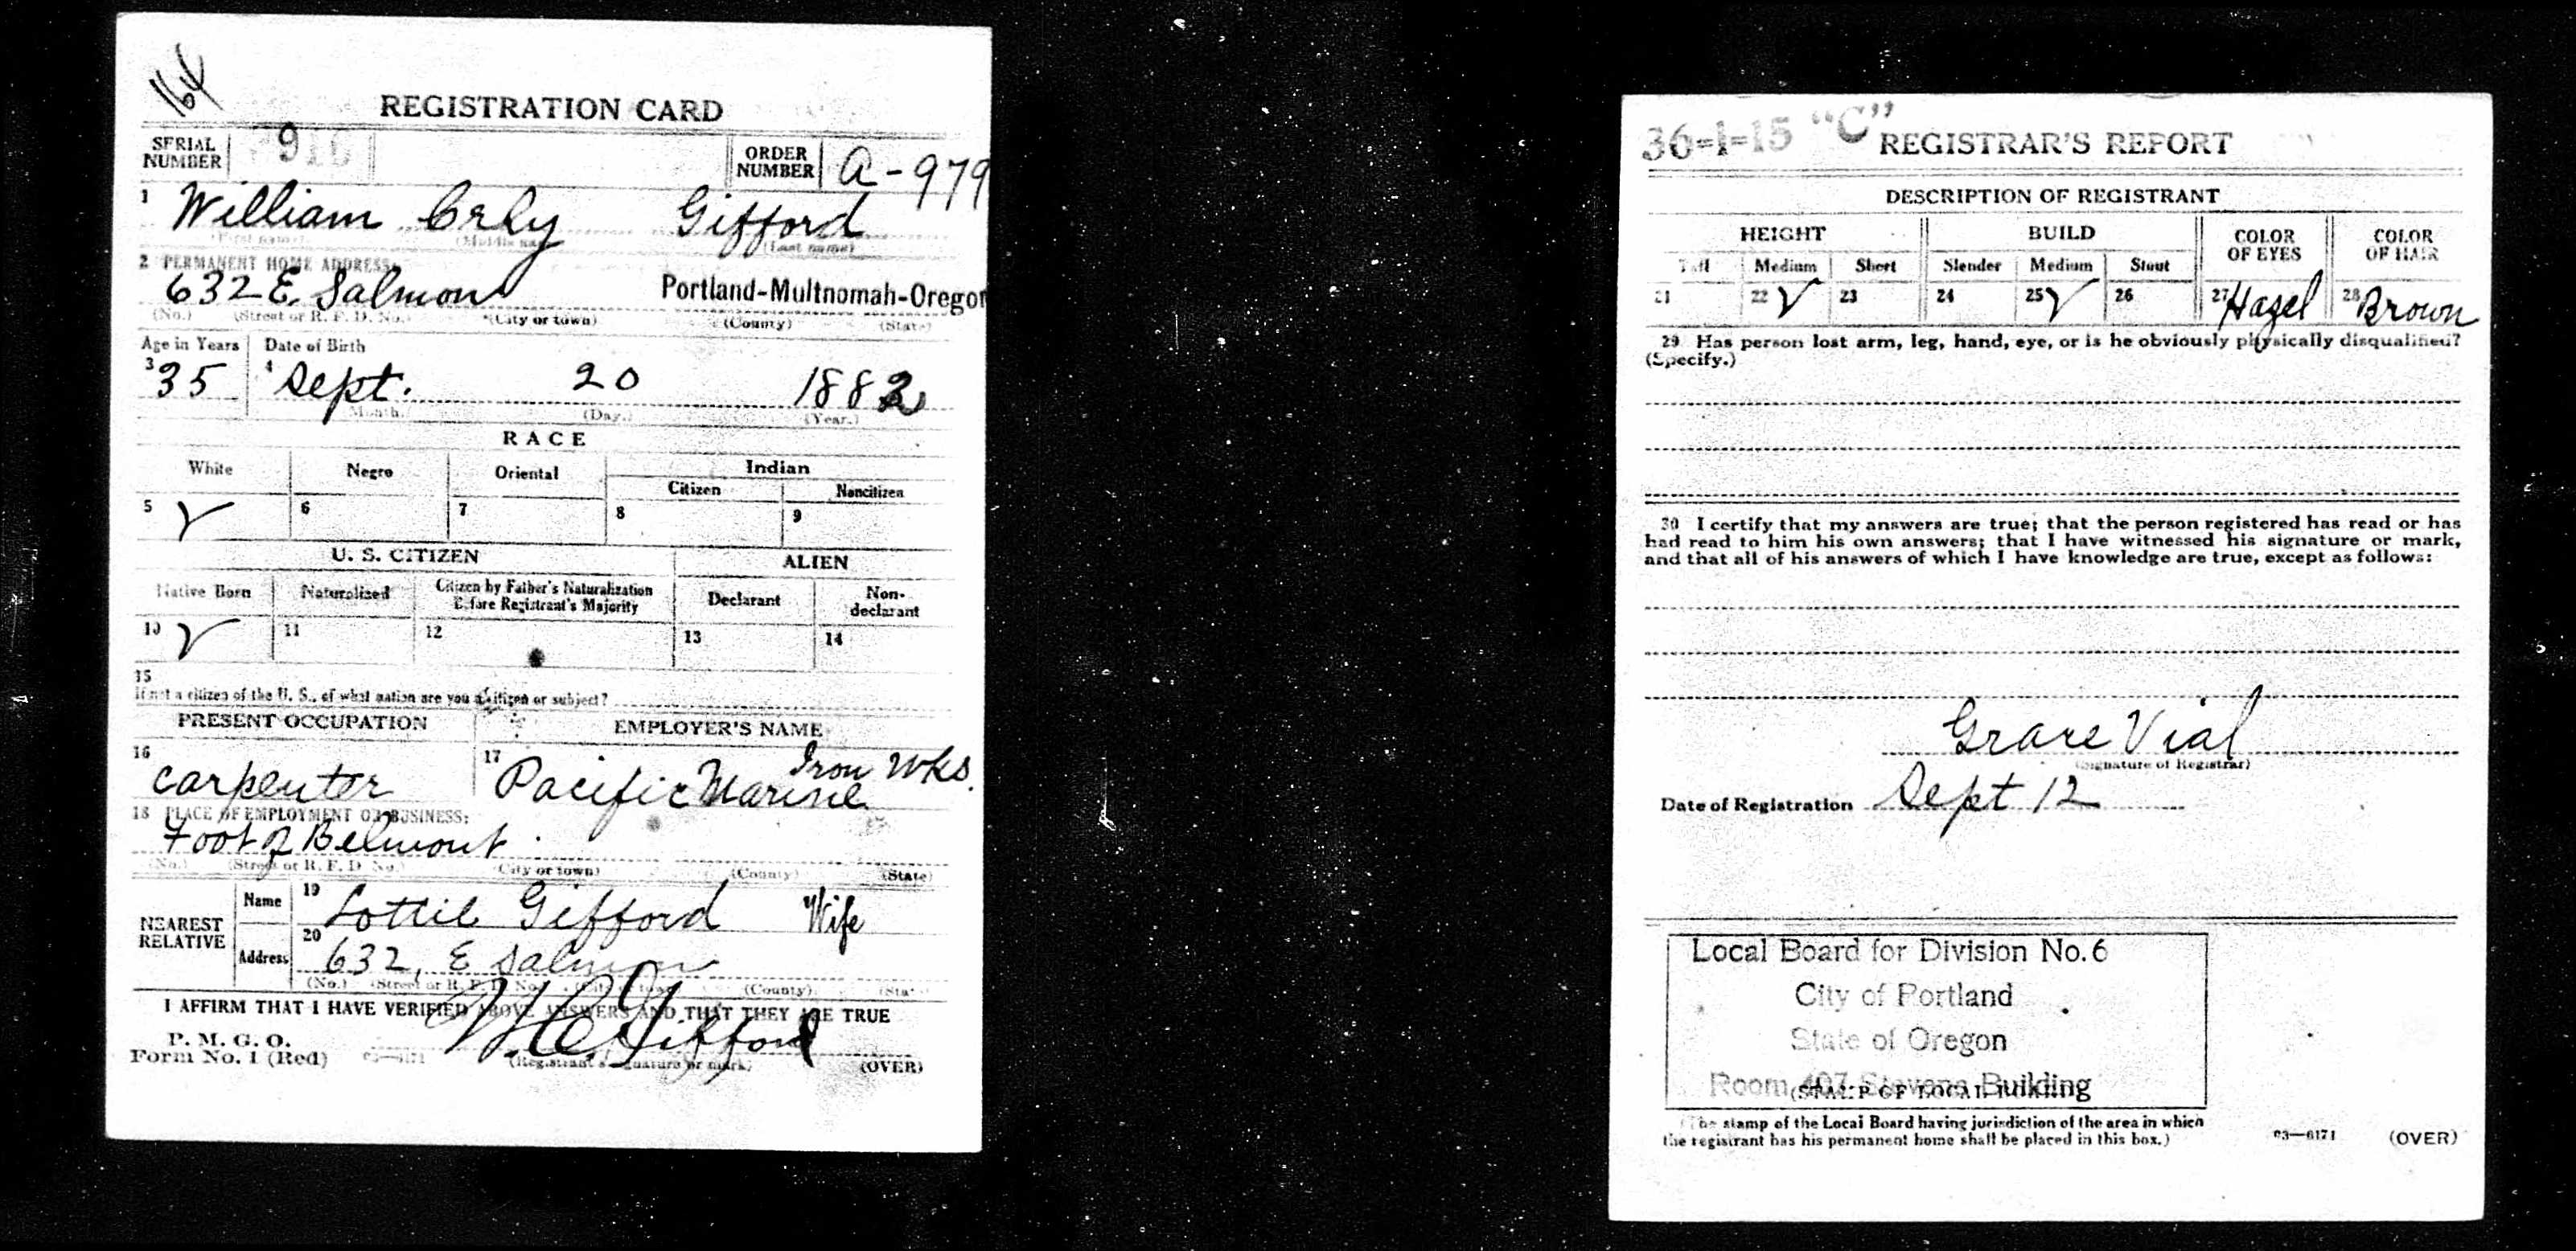 164
REGISTRATION CARD
SERIAL NUMBER 910 ORDER NUMBER A-979
1 William Orly Gifford
(First name) (Middle name) (Last name)
2 PERMANENT HOME ADDRESS:
632 E. Salmon Portland-Multnomah-Oregon
(No.) (Street or R. F. D. No.) (City or town) (County) (State)
Age in Years Date of Birth
3 35 4 Sept. 20 1882
(Month.) (Day.) (Year.)
RACE
White Negro Oriental Indian
Citizen Noncitizen
5 √ 6 7 8 9
U. S. CITIZEN ALIEN
Native Born Naturalized Citizen by Father's Naturalization Before Registrant's Majority Declarant Non-declarant
10 √ 11 12 13 14
15
If not a citizen of the U. S., of what nation are you a citizen or subject?
PRESENT OCCUPATION EMPLOYER'S NAME
16 carpenter 17 Pacific Marine Iron Wks.
18 PLACE OF EMPLOYMENT OR BUSINESS:
Foot of Belmont
(No.) (Street or R. F. D. No.) (City or town) (County) (State)
NEAREST RELATIVE
Name 19 Lottie Gifford Wife
Address 20 632, E Salmon
(No.) (Street or R. F. D. No.) (City or town) (County) (State)
I AFFIRM THAT I HAVE VERIFIED ABOVE ANSWERS AND THAT THEY ARE TRUE
P. M. G. O.
Form No. 1 (Red) 03—6171 W. O. Gifford
(Registrant's signature or mark) (OVER)
36-1-15 "C" REGISTRAR'S REPORT
DESCRIPTION OF REGISTRANT
HEIGHT BUILD COLOR OF EYES COLOR OF HAIR
Tall Medium Short Slender Medium Stout
21 22 √ 23 24 25 √ 26 27 Hazel 28 Brown
29 Has person lost arm, leg, hand, eye, or is he obviously physically disqualified?
(Specify.)
30 I certify that my answers are true; that the person registered has read or has
had read to him his own answers; that I have witnessed his signature or mark,
and that all of his answers of which I have knowledge are true, except as follows:
Grace Vial
(Signature of Registrar)
Date of Registration Sept 12
Local Board for Division No. 6
City of Portland
State of Oregon
Room 407 Stevens Building
(STAMP OF LOCAL BOARD)
(The stamp of the Local Board having jurisdiction of the area in which
the registrant has his permanent home shall be placed in this box.)
03—6171 (OVER)